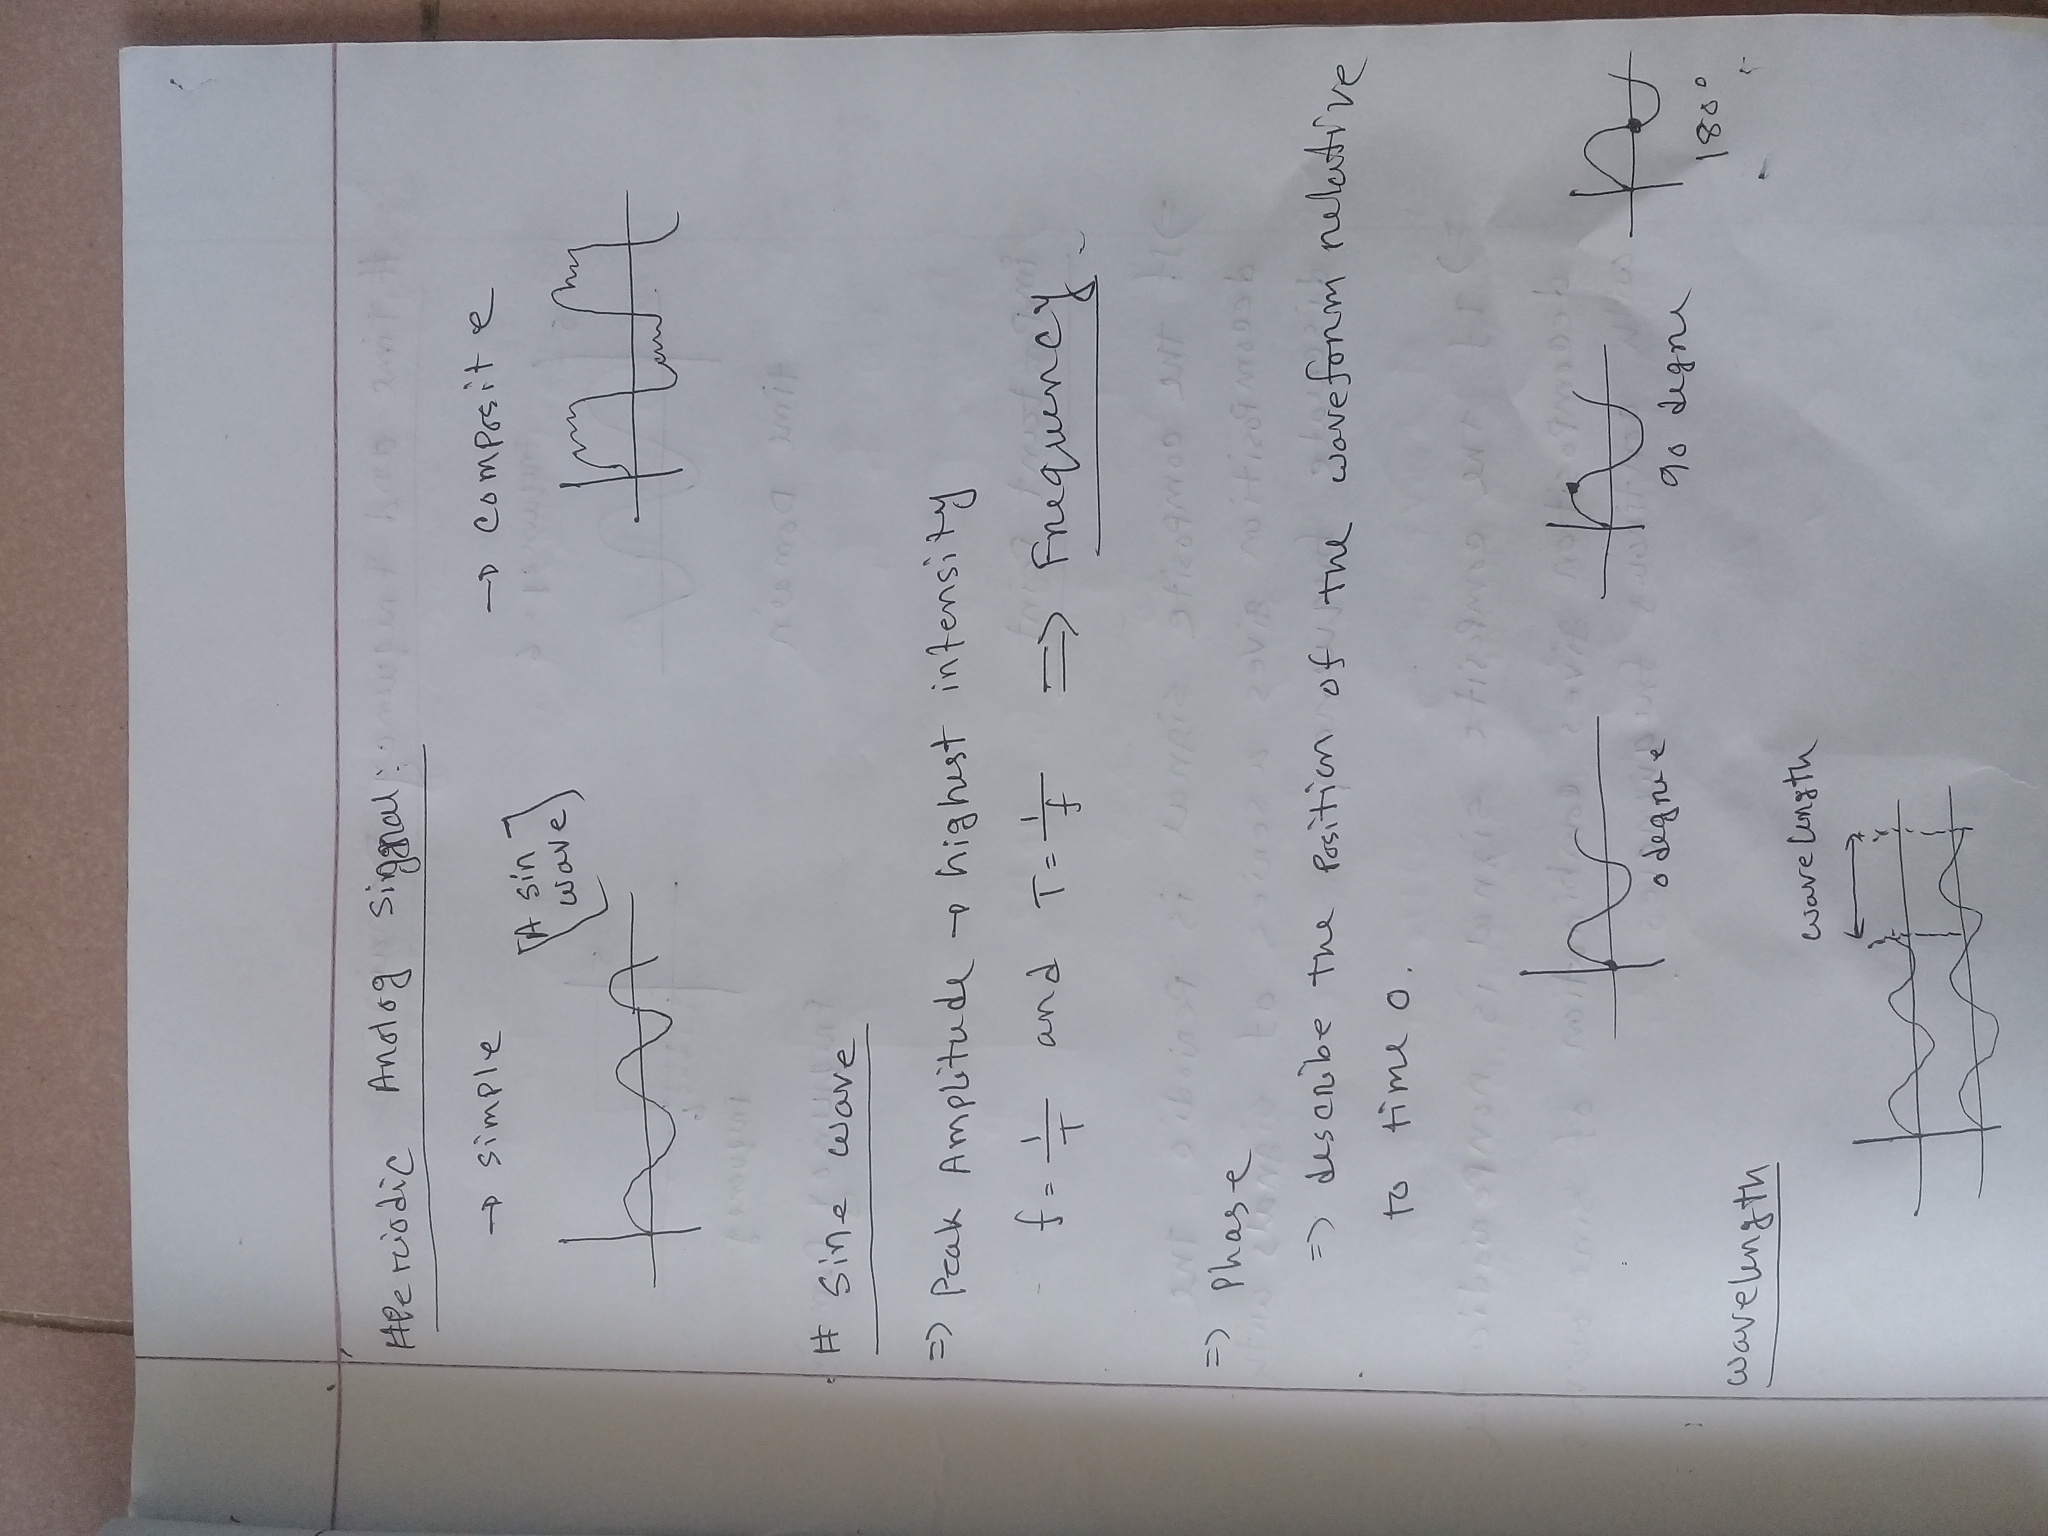 # Periodic Analog Signal:
→ simple
→ composite
[A sin
wave]
# Sine wave
=> Peak Amplitude → highest intensity
f = 1/T and T = 1/f => Frequency
=> Phase
=> describe the position of the waveform relative
to time 0.
0 degree
90 degre
180°
wavelength
wavelength